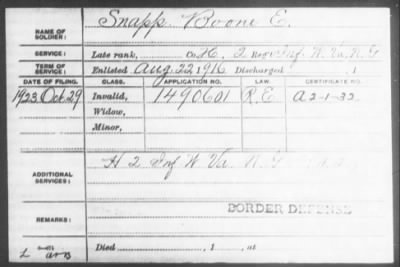 NAME OF SOLDIER: Snapp Boone E.
SERVICE: Late rank, Co. H, 2 Reg't Inf. W. Va. N. G
TERM OF SERVICE: Enlisted Aug. 22 1916 Discharged , 1
DATE OF FILING. CLASS. APPLICATION NO. LAW. CERTIFICATE NO.
1923 Oct 29 Invalid, 1490601 R.E A-2-1-32
Widow,
Minor,
ADDITIONAL SERVICES: H 2 Inf W Va N. G
BORDER DEFENSE
REMARKS:
Died , 1 , at